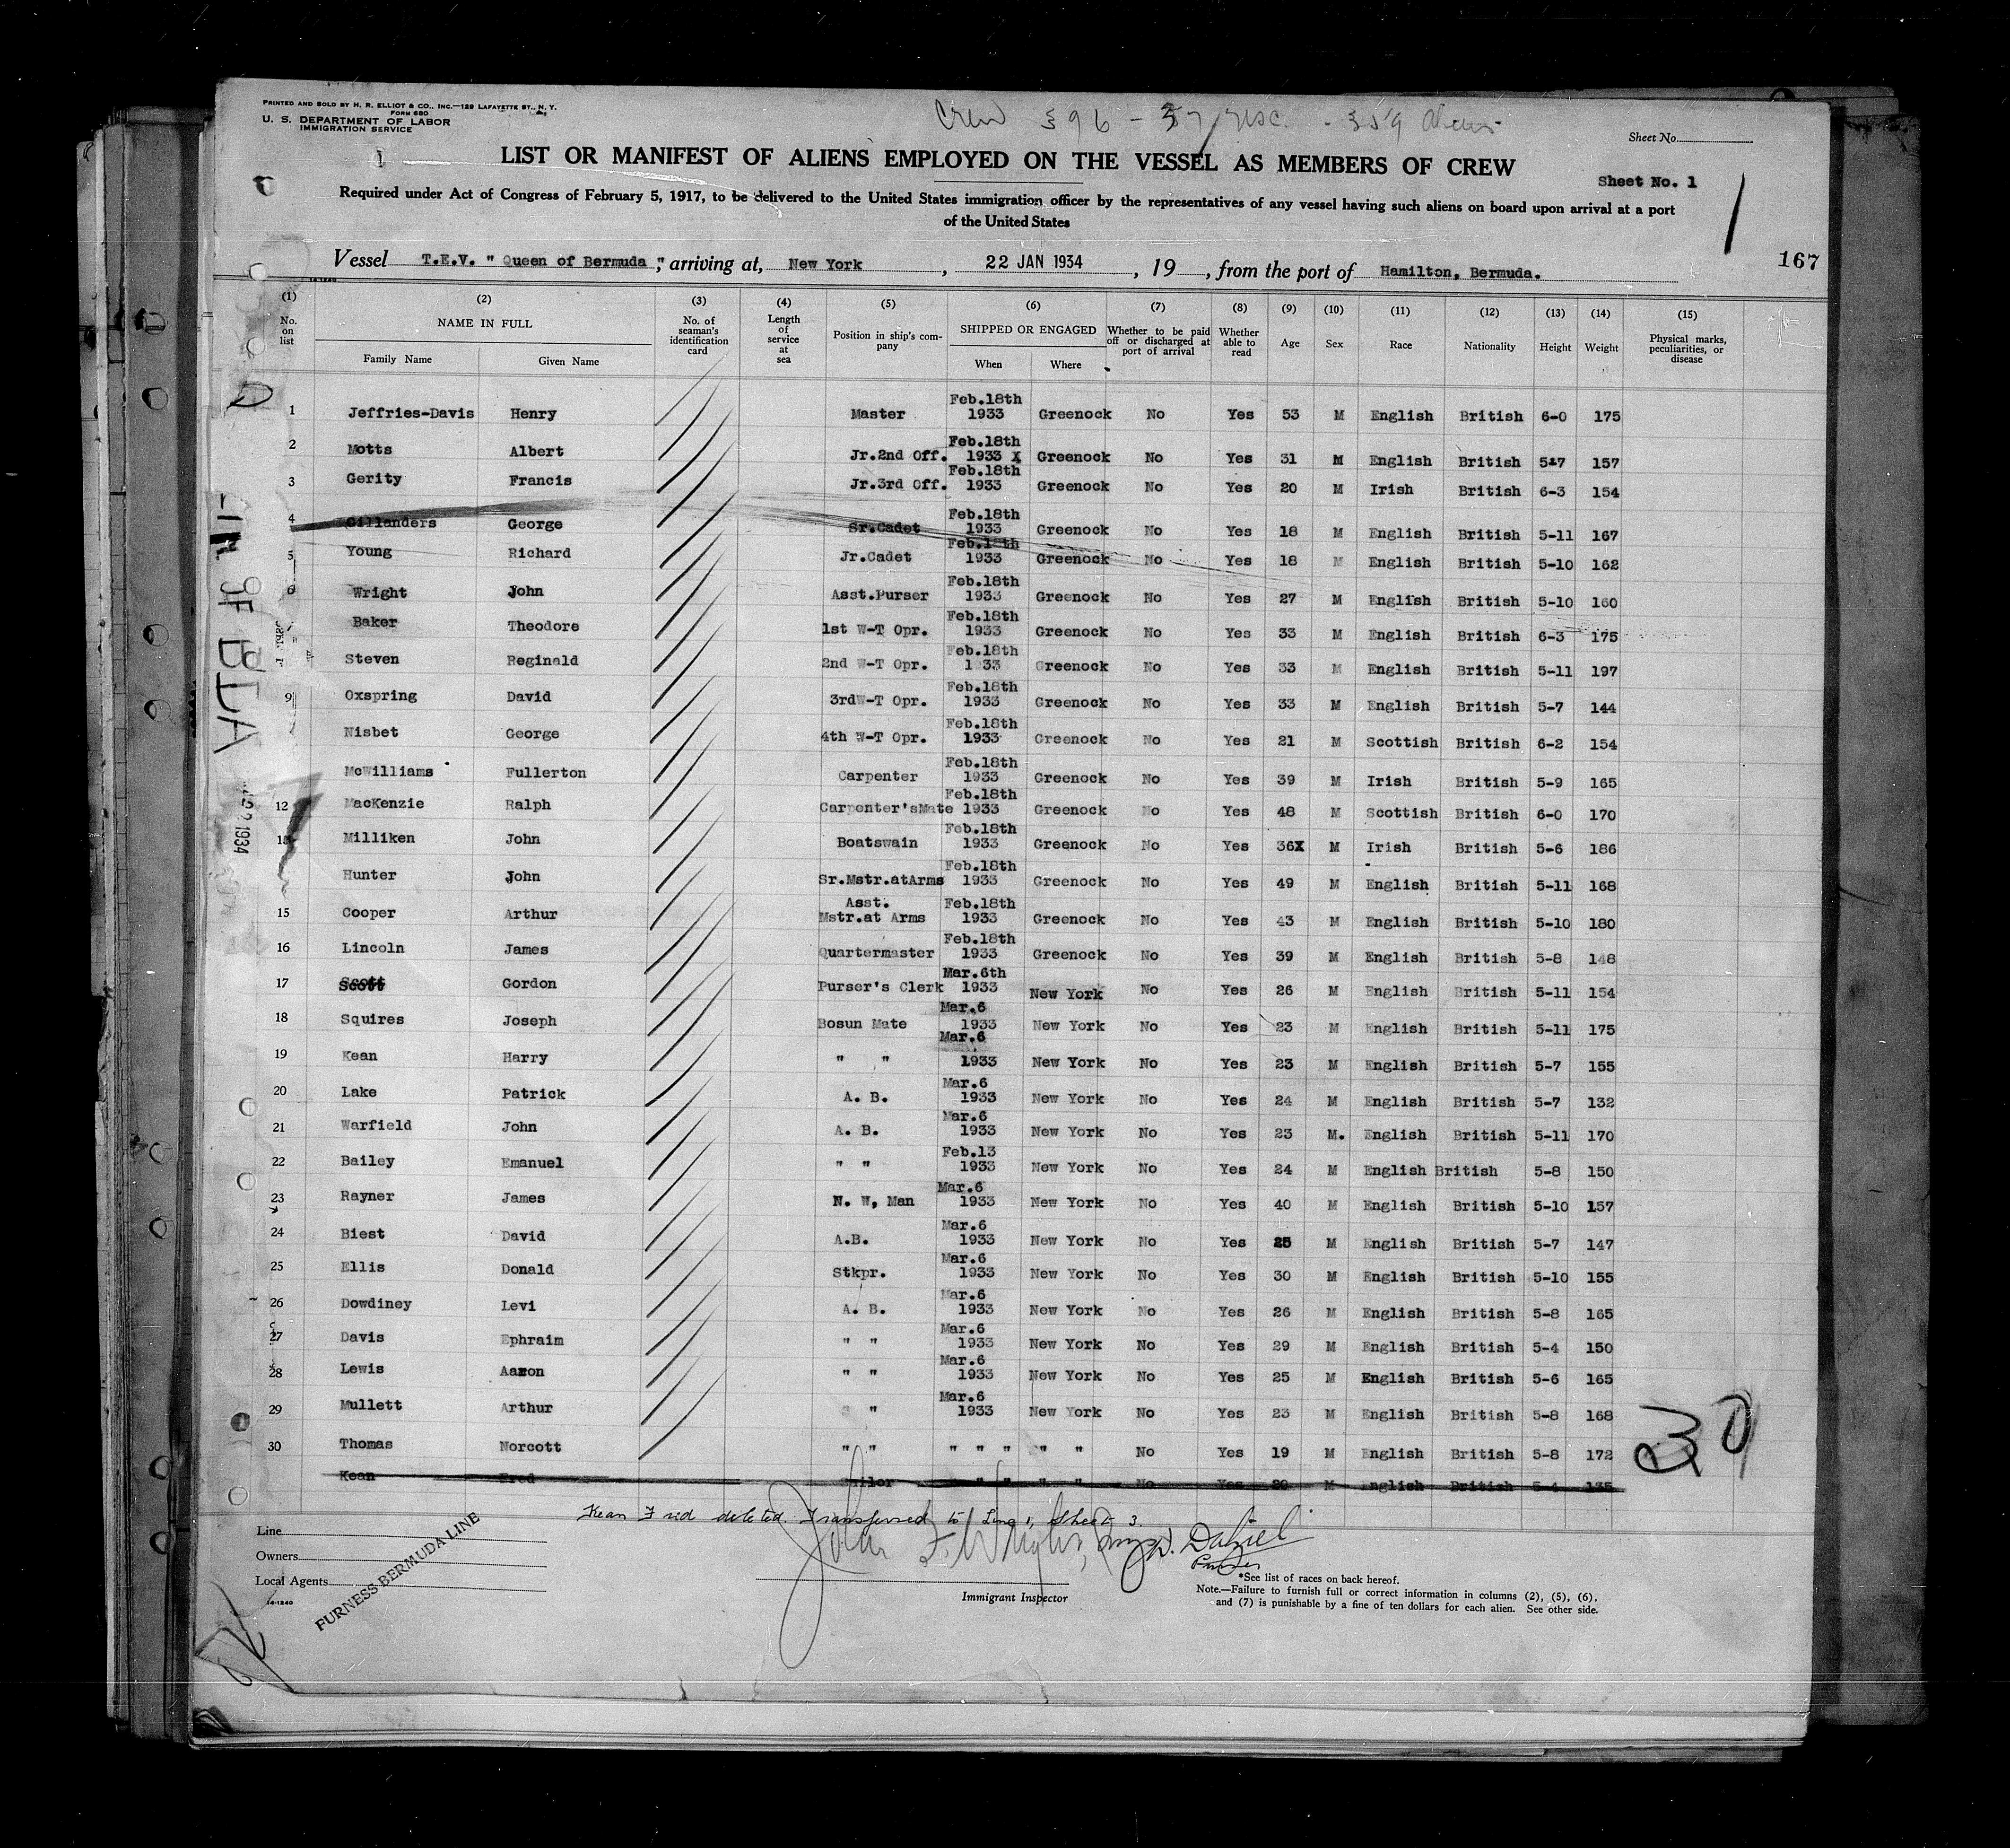 PRINTED AND SOLD BY H. R. ELLIOT & CO., INC.—129 LAFAYETTE ST., N. Y.
FORM 680
U. S. DEPARTMENT OF LABOR
IMMIGRATION SERVICE
Crew 396 - 37 - 359 Aliens
Sheet No.
LIST OR MANIFEST OF ALIENS EMPLOYED ON THE VESSEL AS MEMBERS OF CREW
Sheet No. 1
Required under Act of Congress of February 5, 1917, to be delivered to the United States immigration officer by the representatives of any vessel having such aliens on board upon arrival at a port
of the United States
Vessel T.E.V. " Queen of Bermuda ", arriving at, New York, 22 JAN 1934, 19, from the port of Hamilton, Bermuda.
167
14-1240
(1) (2) (3) (4) (5) (6) (7) (8) (9) (10) (11) (12) (13) (14) (15)
No. on list
NAME IN FULL
Family Name Given Name
No. of seaman's identification card
Length of service at sea
Position in ship's company
SHIPPED OR ENGAGED
When Where
Whether to be paid off or discharged at port of arrival
Whether able to read
Age Sex Race Nationality Height Weight
Physical marks, peculiarities, or disease
1 Jeffries-Davis Henry Master Feb.18th 1933 Greenock No Yes 53 M English British 6-0 175
2 Motts Albert Jr.2nd Off. Feb.18th 1933 X Greenock No Yes 31 M English British 5-7 157
3 Gerity Francis Jr.3rd Off. Feb.18th 1933 Greenock No Yes 20 M Irish British 6-3 154
4 Gillanders George Sr.Cadet Feb.18th 1933 Greenock No Yes 18 M English British 5-11 167
5 Young Richard Jr.Cadet Feb.18th 1933 Greenock No Yes 18 M English British 5-10 162
6 Wright John Asst.Purser Feb.18th 1933 Greenock No Yes 27 M English British 5-10 160
Baker Theodore 1st W-T Opr. Feb.18th 1933 Greenock No Yes 33 M English British 6-3 175
Steven Reginald 2nd W-T Opr. Feb.18th 1933 Greenock No Yes 33 M English British 5-11 197
9 Oxspring David 3rdW-T Opr. Feb.18th 1933 Greenock No Yes 33 M English British 5-7 144
Nisbet George 4th W-T Opr. Feb.18th 1933 Greenock No Yes 21 M Scottish British 6-2 154
McWilliams Fullerton Carpenter Feb.18th 1933 Greenock No Yes 39 M Irish British 5-9 165
12 MacKenzie Ralph Carpenter'sMate Feb.18th 1933 Greenock No Yes 48 M Scottish British 6-0 170
13 Milliken John Boatswain Feb.18th 1933 Greenock No Yes 36X M Irish British 5-6 186
Hunter John Sr.Mstr.atArms Feb.18th 1933 Greenock No Yes 49 M English British 5-11 168
15 Cooper Arthur Asst. Mstr.at Arms Feb.18th 1933 Greenock No Yes 43 M English British 5-10 180
16 Lincoln James Quartermaster Feb.18th 1933 Greenock No Yes 39 M English British 5-8 148
17 Scott Gordon Purser's Clerk Mar.6th 1933 New York No Yes 26 M English British 5-11 154
18 Squires Joseph Bosun Mate Mar.6 1933 New York No Yes 23 M English British 5-11 175
19 Kean Harry " " Mar.6 1933 New York No Yes 23 M English British 5-7 155
20 Lake Patrick A. B. Mar.6 1933 New York No Yes 24 M English British 5-7 132
21 Warfield John A. B. Mar.6 1933 New York No Yes 23 M. English British 5-11 170
22 Bailey Emanuel " " Feb.13 1933 New York No Yes 24 M English British 5-8 150
23 Rayner James N. W, Man Mar.6 1933 New York No Yes 40 M English British 5-10 157
24 Biest David A.B. Mar.6 1933 New York No Yes 25 M English British 5-7 147
25 Ellis Donald Stkpr. Mar.6 1933 New York No Yes 30 M English British 5-10 155
26 Dowdiney Levi A. B. Mar.6 1933 New York No Yes 26 M English British 5-8 165
27 Davis Ephraim " " Mar.6 1933 New York No Yes 29 M English British 5-4 150
28 Lewis Aaron " " Mar.6 1933 New York No Yes 25 M English British 5-6 165
29 Mullett Arthur " " Mar.6 1933 New York No Yes 23 M English British 5-8 168
30 Thomas Norcott " " " " " " " No Yes 19 M English British 5-8 172
Kean Fred " " " " No Yes 20 M English British 5-4 135
30
Kean Fred deleted. Transferred to Line 1, Sheet 3.
Line
Owners
Local Agents
FURNESS BERMUDA LINE
14-1240
John F. Wright
Dalziel
Purser
Immigrant Inspector
*See list of races on back hereof.
Note.—Failure to furnish full or correct information in columns (2), (5), (6), and (7) is punishable by a fine of ten dollars for each alien. See other side.